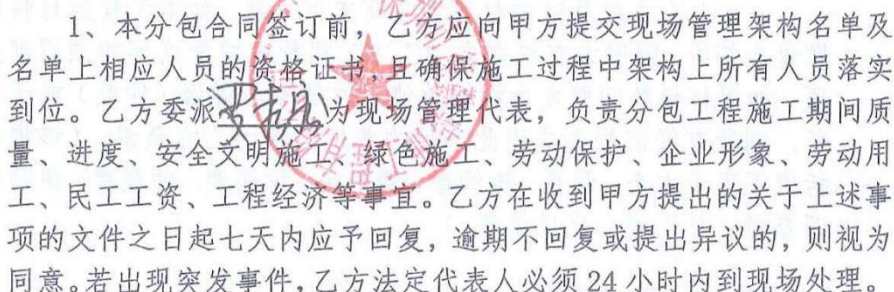 1、本分包合同签订前，乙方应向甲方提交现场管理架构名单及
名单上相应人员的资格证书,且确保施工过程中架构上所有人员落实
到位。乙方委派 为现场管理代表，负责分包工程施工期间质
量、进度、安全文明施工、绿色施工、劳动保护、企业形象、劳动用
工、民工工资、工程经济等事宜。乙方在收到甲方提出的关于上述事
项的文件之日起七天内应予回复，逾期不回复或提出异议的，则视为
同意。若出现突发事件,乙方法定代表人必须 24 小时内到现场处理。